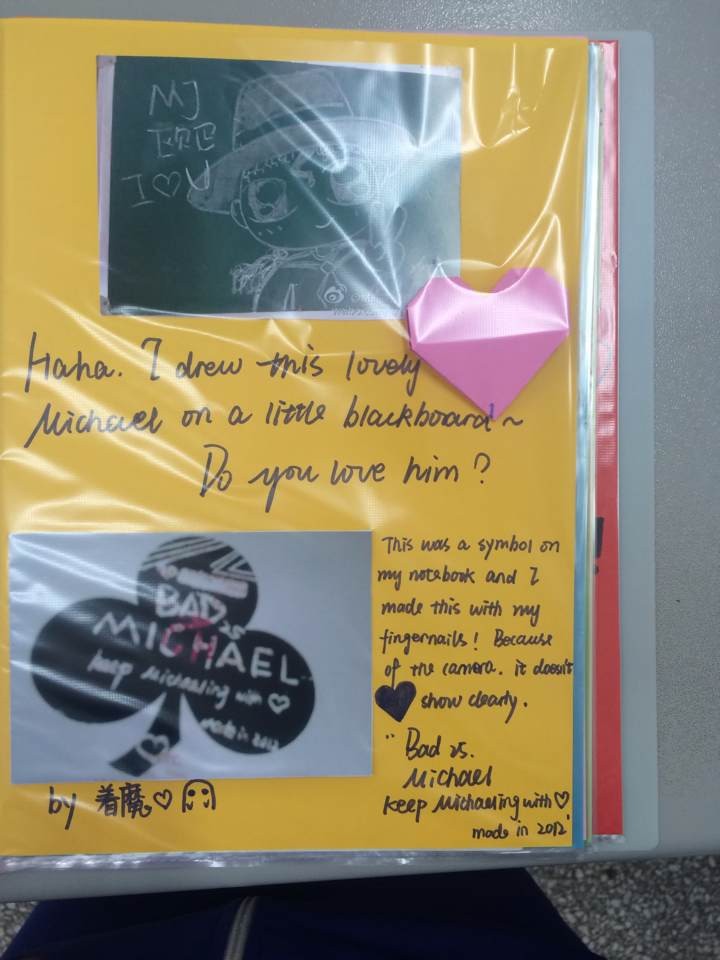 MJ
I♡U
Haha. I drew this lovely
Michael on a little blackboard~
Do you love him?
BAD
25
MICHAEL
keep Michaeling with ♡
made in 2012
This was a symbol on
my notebook and I
made this with my
fingernails! Because
of the camera. it doesn't
show clearly.
"Bad 25.
Michael
keep Michaeling with ♡
made in 2012"
by 着魔♡